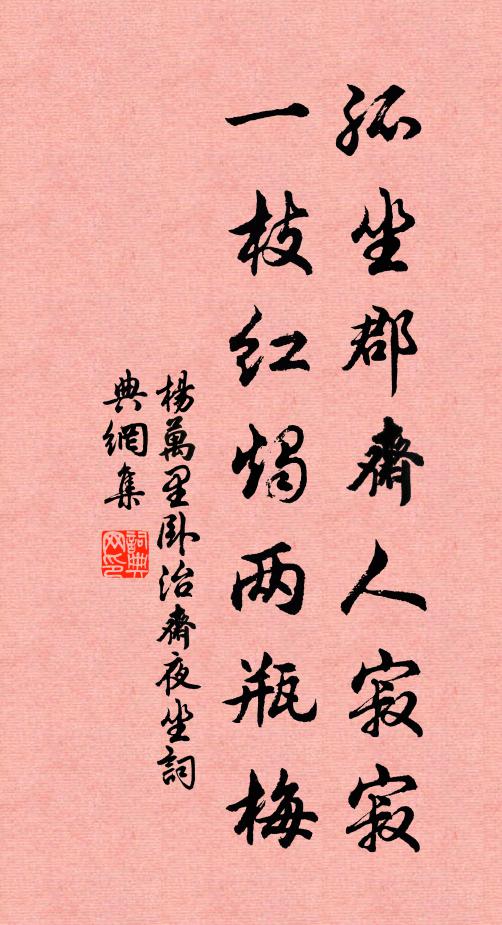 孤坐郡齋人寂寂
一枝红燭两瓶梅
楊萬里卧治齋夜坐詞
典網集
詞典
网印